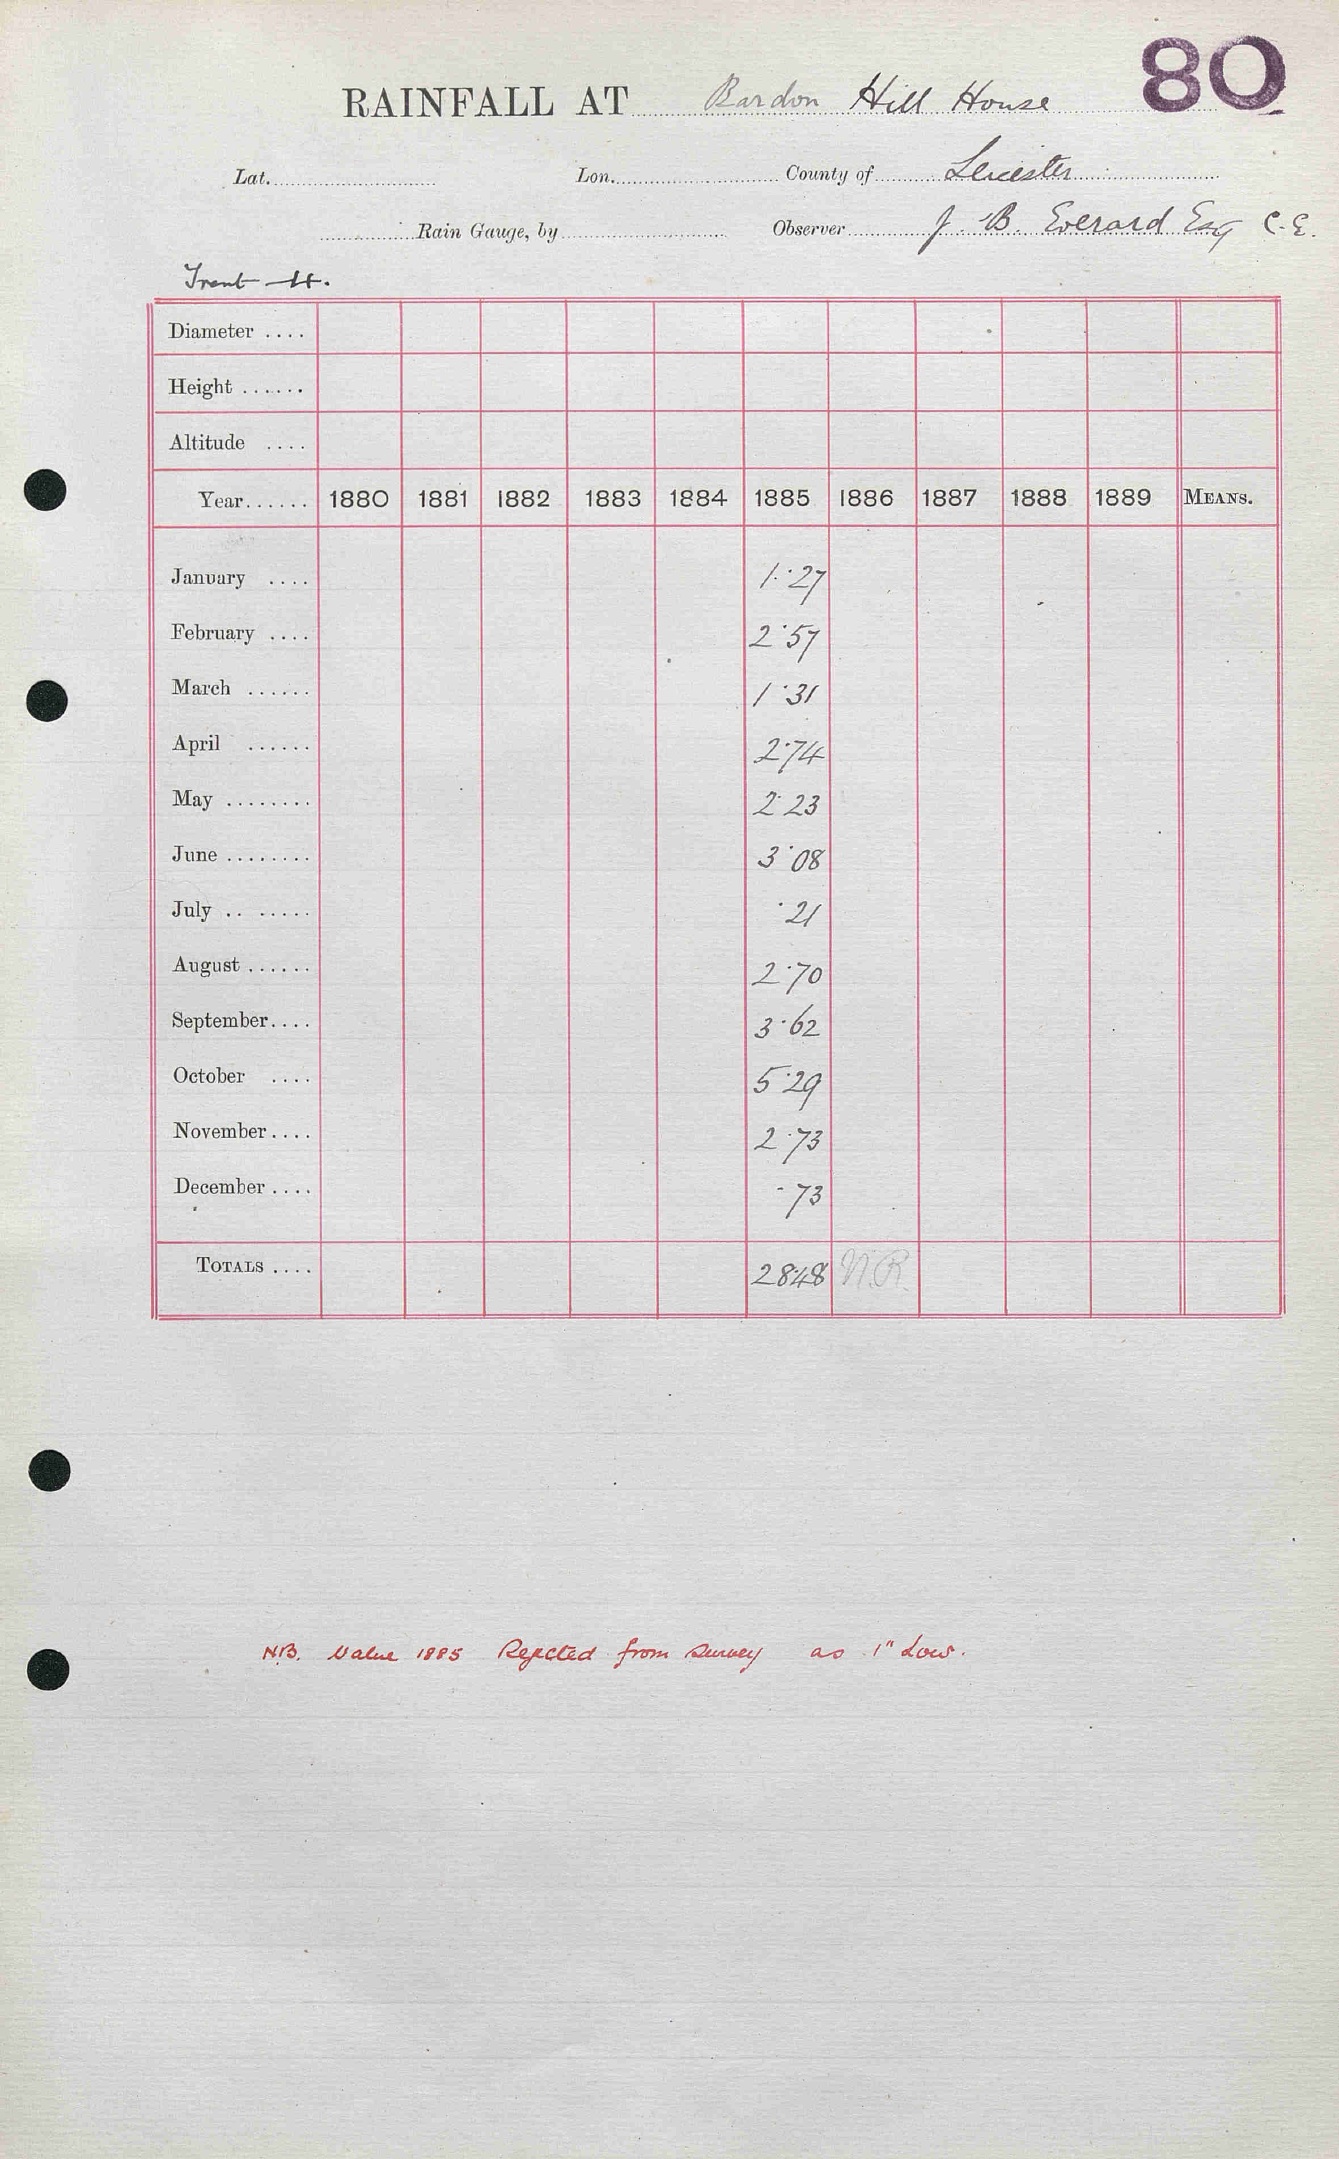 80
RAINFALL AT Bardon Hill House
Lat. Lon. County of Leicester
Rain Gauge, by Observer J. B. Everard Esq C.E.
Trent
Diameter ....
Height ......
Altitude ....
Year...... 1880 1881 1882 1883 1884 1885 1886 1887 1888 1889 MEANS.
January .... 1.27
February .... 2.57
March ...... 1.31
April ...... 2.74
May ........ 2.23
June ........ 3.08
July .. ..... .21
August ...... 2.70
September.... 3.62
October .... 5.29
November.... 2.73
December .... .73
TOTALS .... 28.48 N.R.
N.B. Value 1885 Rejected from Survey as 1" Low.